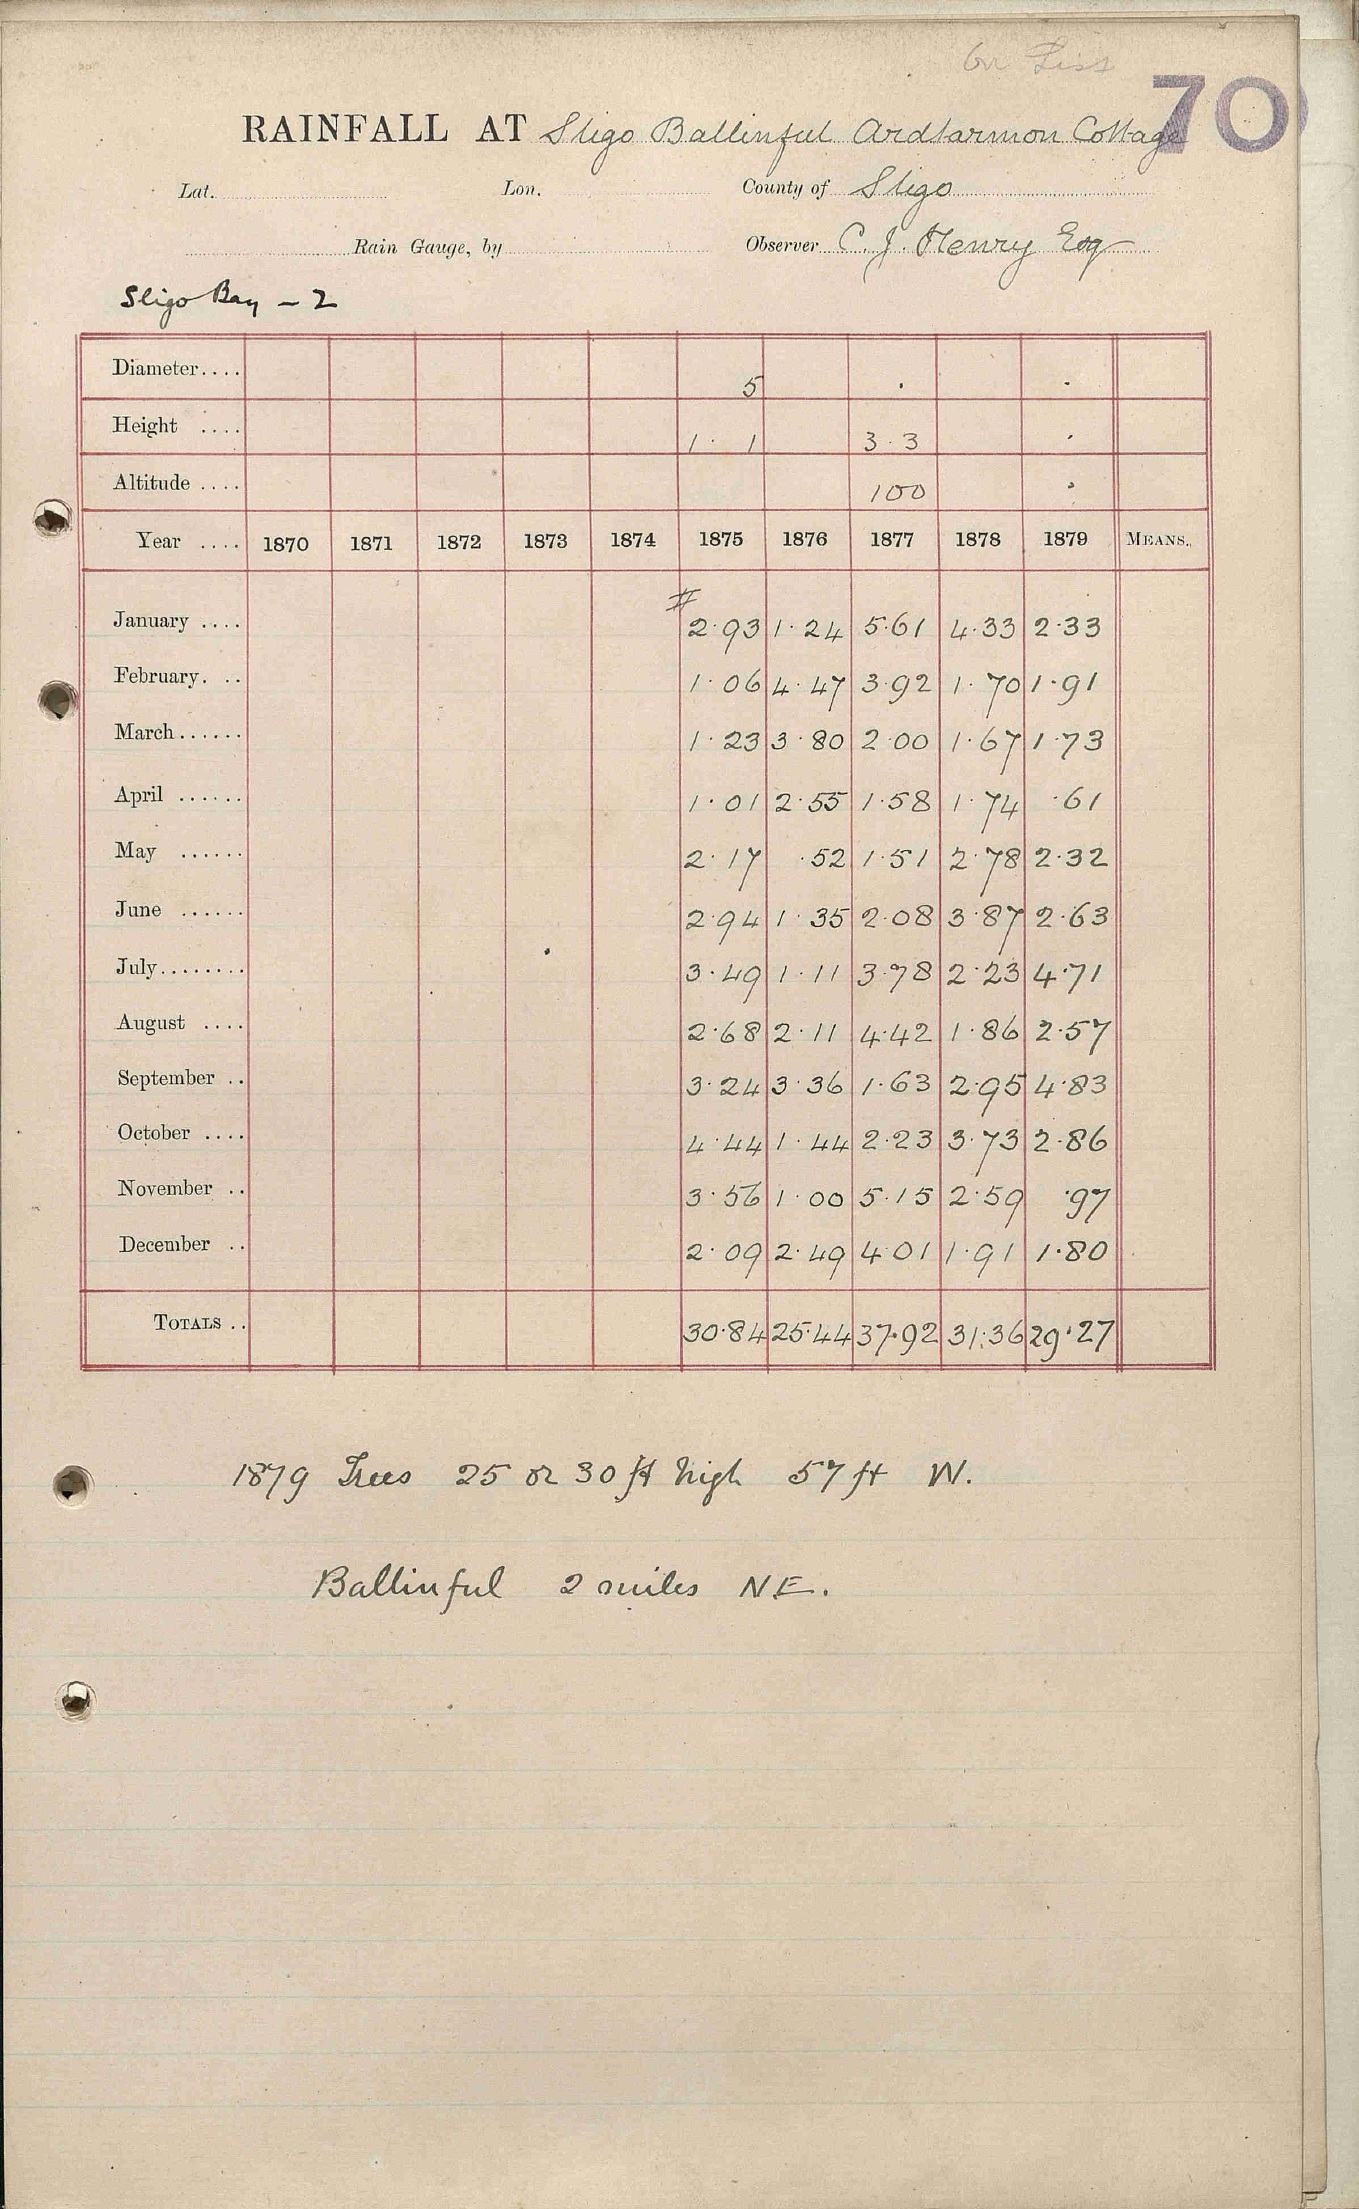 On List
70
RAINFALL AT Sligo Ballinful Ardtarmon Cottage
Lat. Lon. County of Sligo
Rain Gauge, by Observer C. J. Henry Esq
Sligo Bay – 2
Diameter.... 5 . .
Height .... 1 . 1 3 . 3 .
Altitude .... 100 .
Year .... 1870 1871 1872 1873 1874 1875 1876 1877 1878 1879 MEANS.
#
January .... 2.93 1.24 5.61 4.33 2.33
February. .. 1.06 4.47 3.92 1.70 1.91
March...... 1.23 3.80 2.00 1.67 1.73
April ...... 1.01 2.55 1.58 1.74 .61
May ...... 2.17 .52 1.51 2.78 2.32
June ...... 2.94 1.35 2.08 3.87 2.63
July........ 3.49 1.11 3.78 2.23 4.71
August .... 2.68 2.11 4.42 1.86 2.57
September .. 3.24 3.36 1.63 2.95 4.83
October .... 4.44 1.44 2.23 3.73 2.86
November .. 3.56 1.00 5.15 2.59 .97
December .. 2.09 2.49 4.01 1.91 1.80
TOTALS .. 30.84 25.44 37.92 31.36 29.27
1879 Trees 25 or 30 ft high 57 ft W.
Ballinful 2 miles N.E.